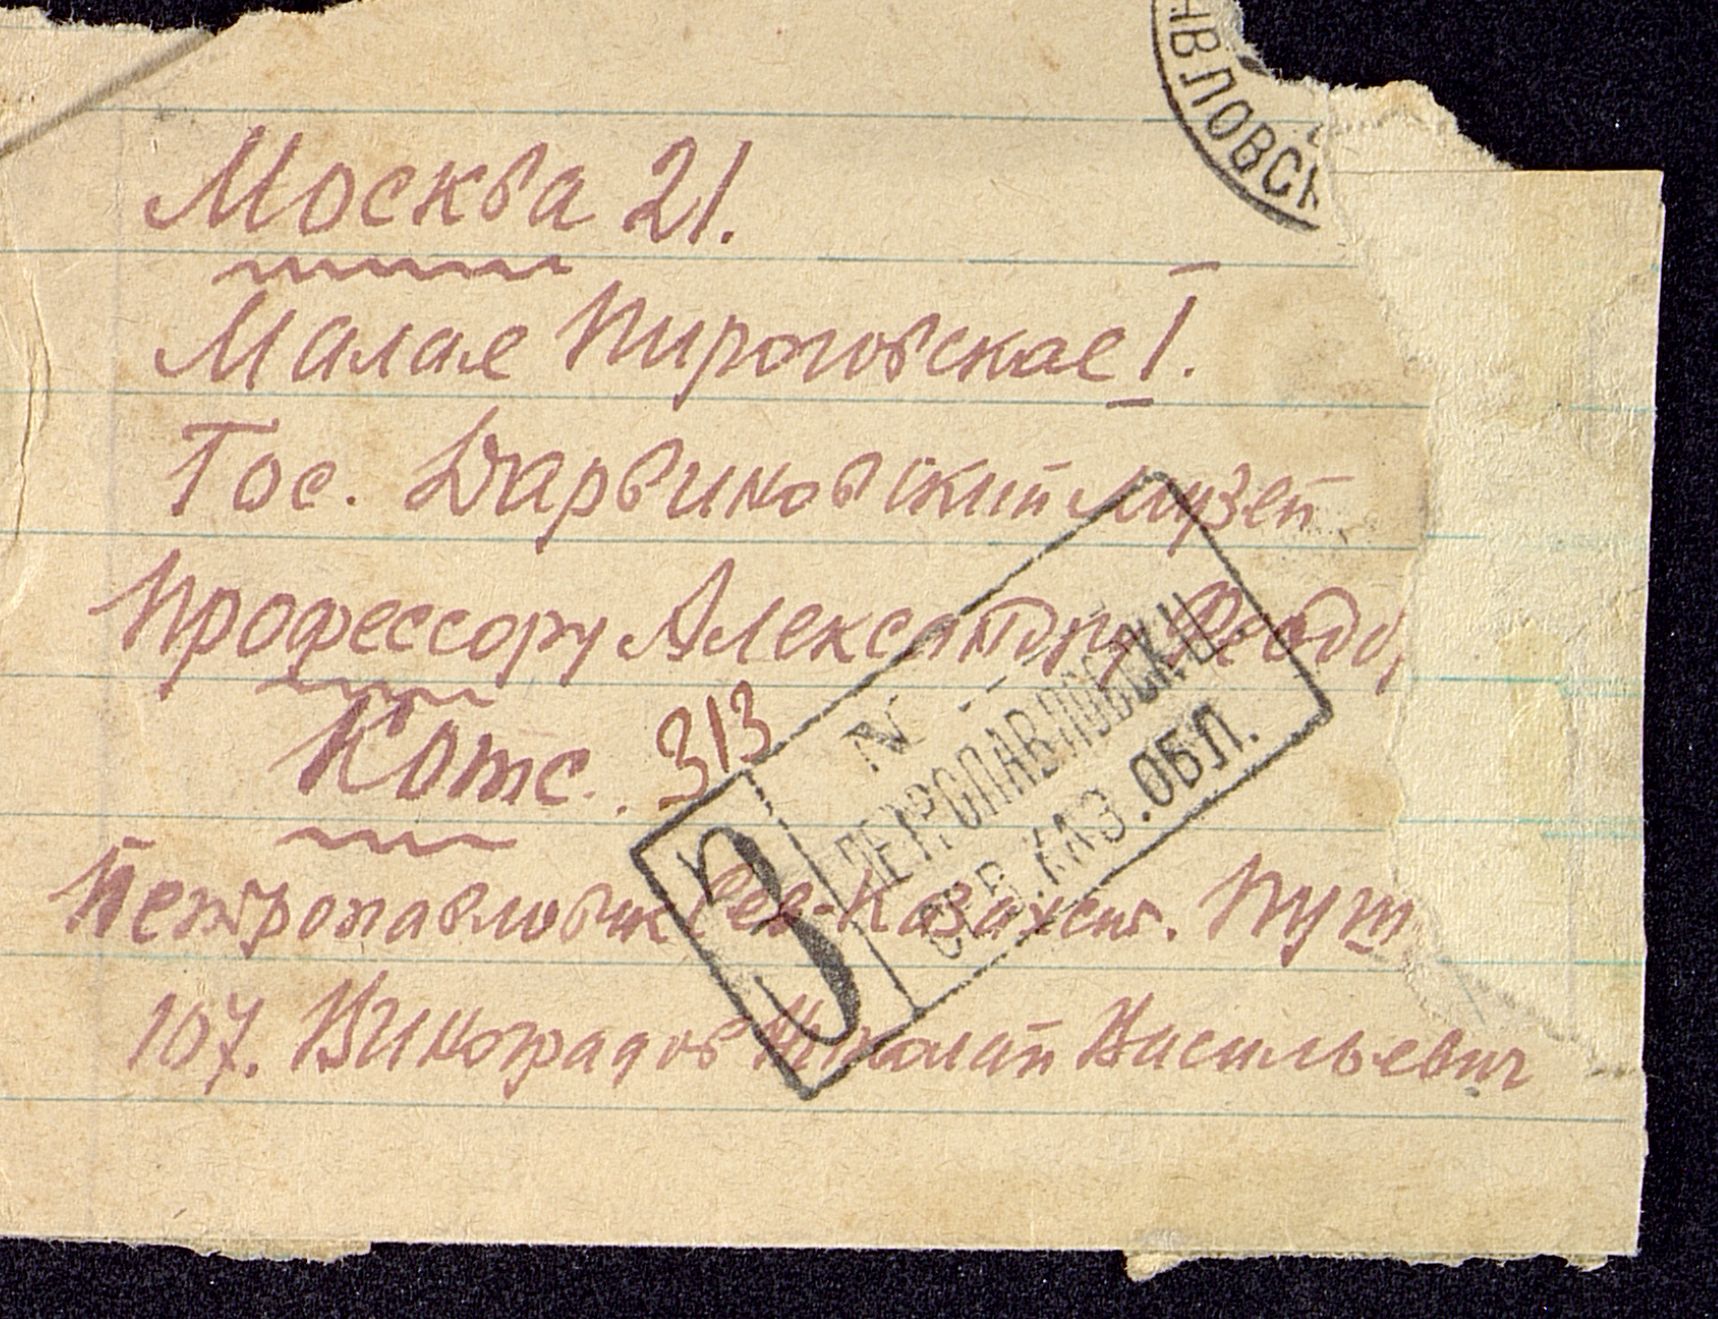 АВЛОВСК
Москва 21.
Малая Пироговская 1.
Гос. Дарвиновский музей
Профессору Александру Феодо
Котс. 313
N
ПЕТРОПАВЛОВСК П.
СЕВ.КАЗ.ОБЛ.
З
Петропавловск Сев-Казахст. Пушк
107. Виноградов Николай Васильевич